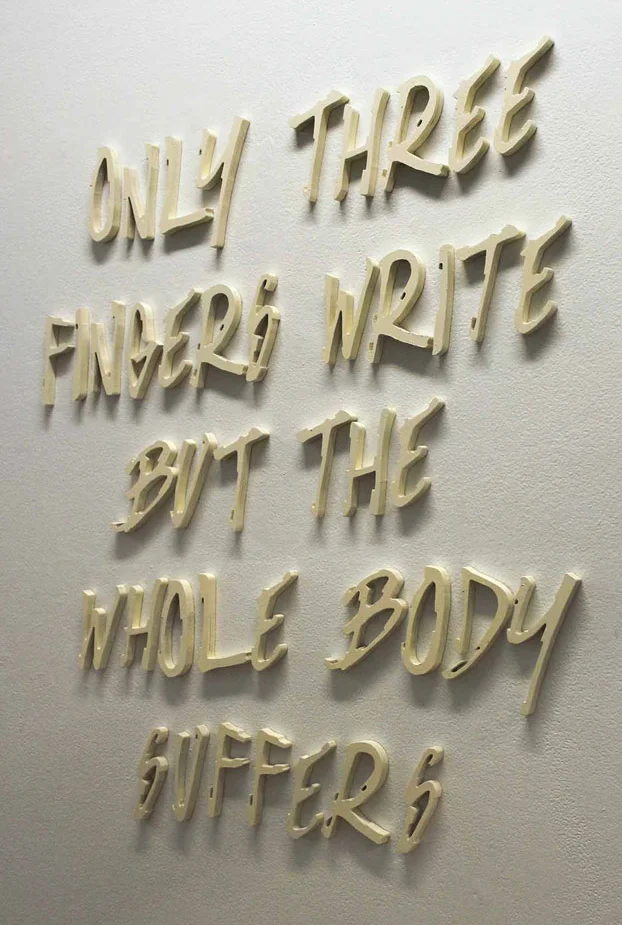 ONLY THREE
FINGERS WRITE
BUT THE
WHOLE BODY
SUFFERS